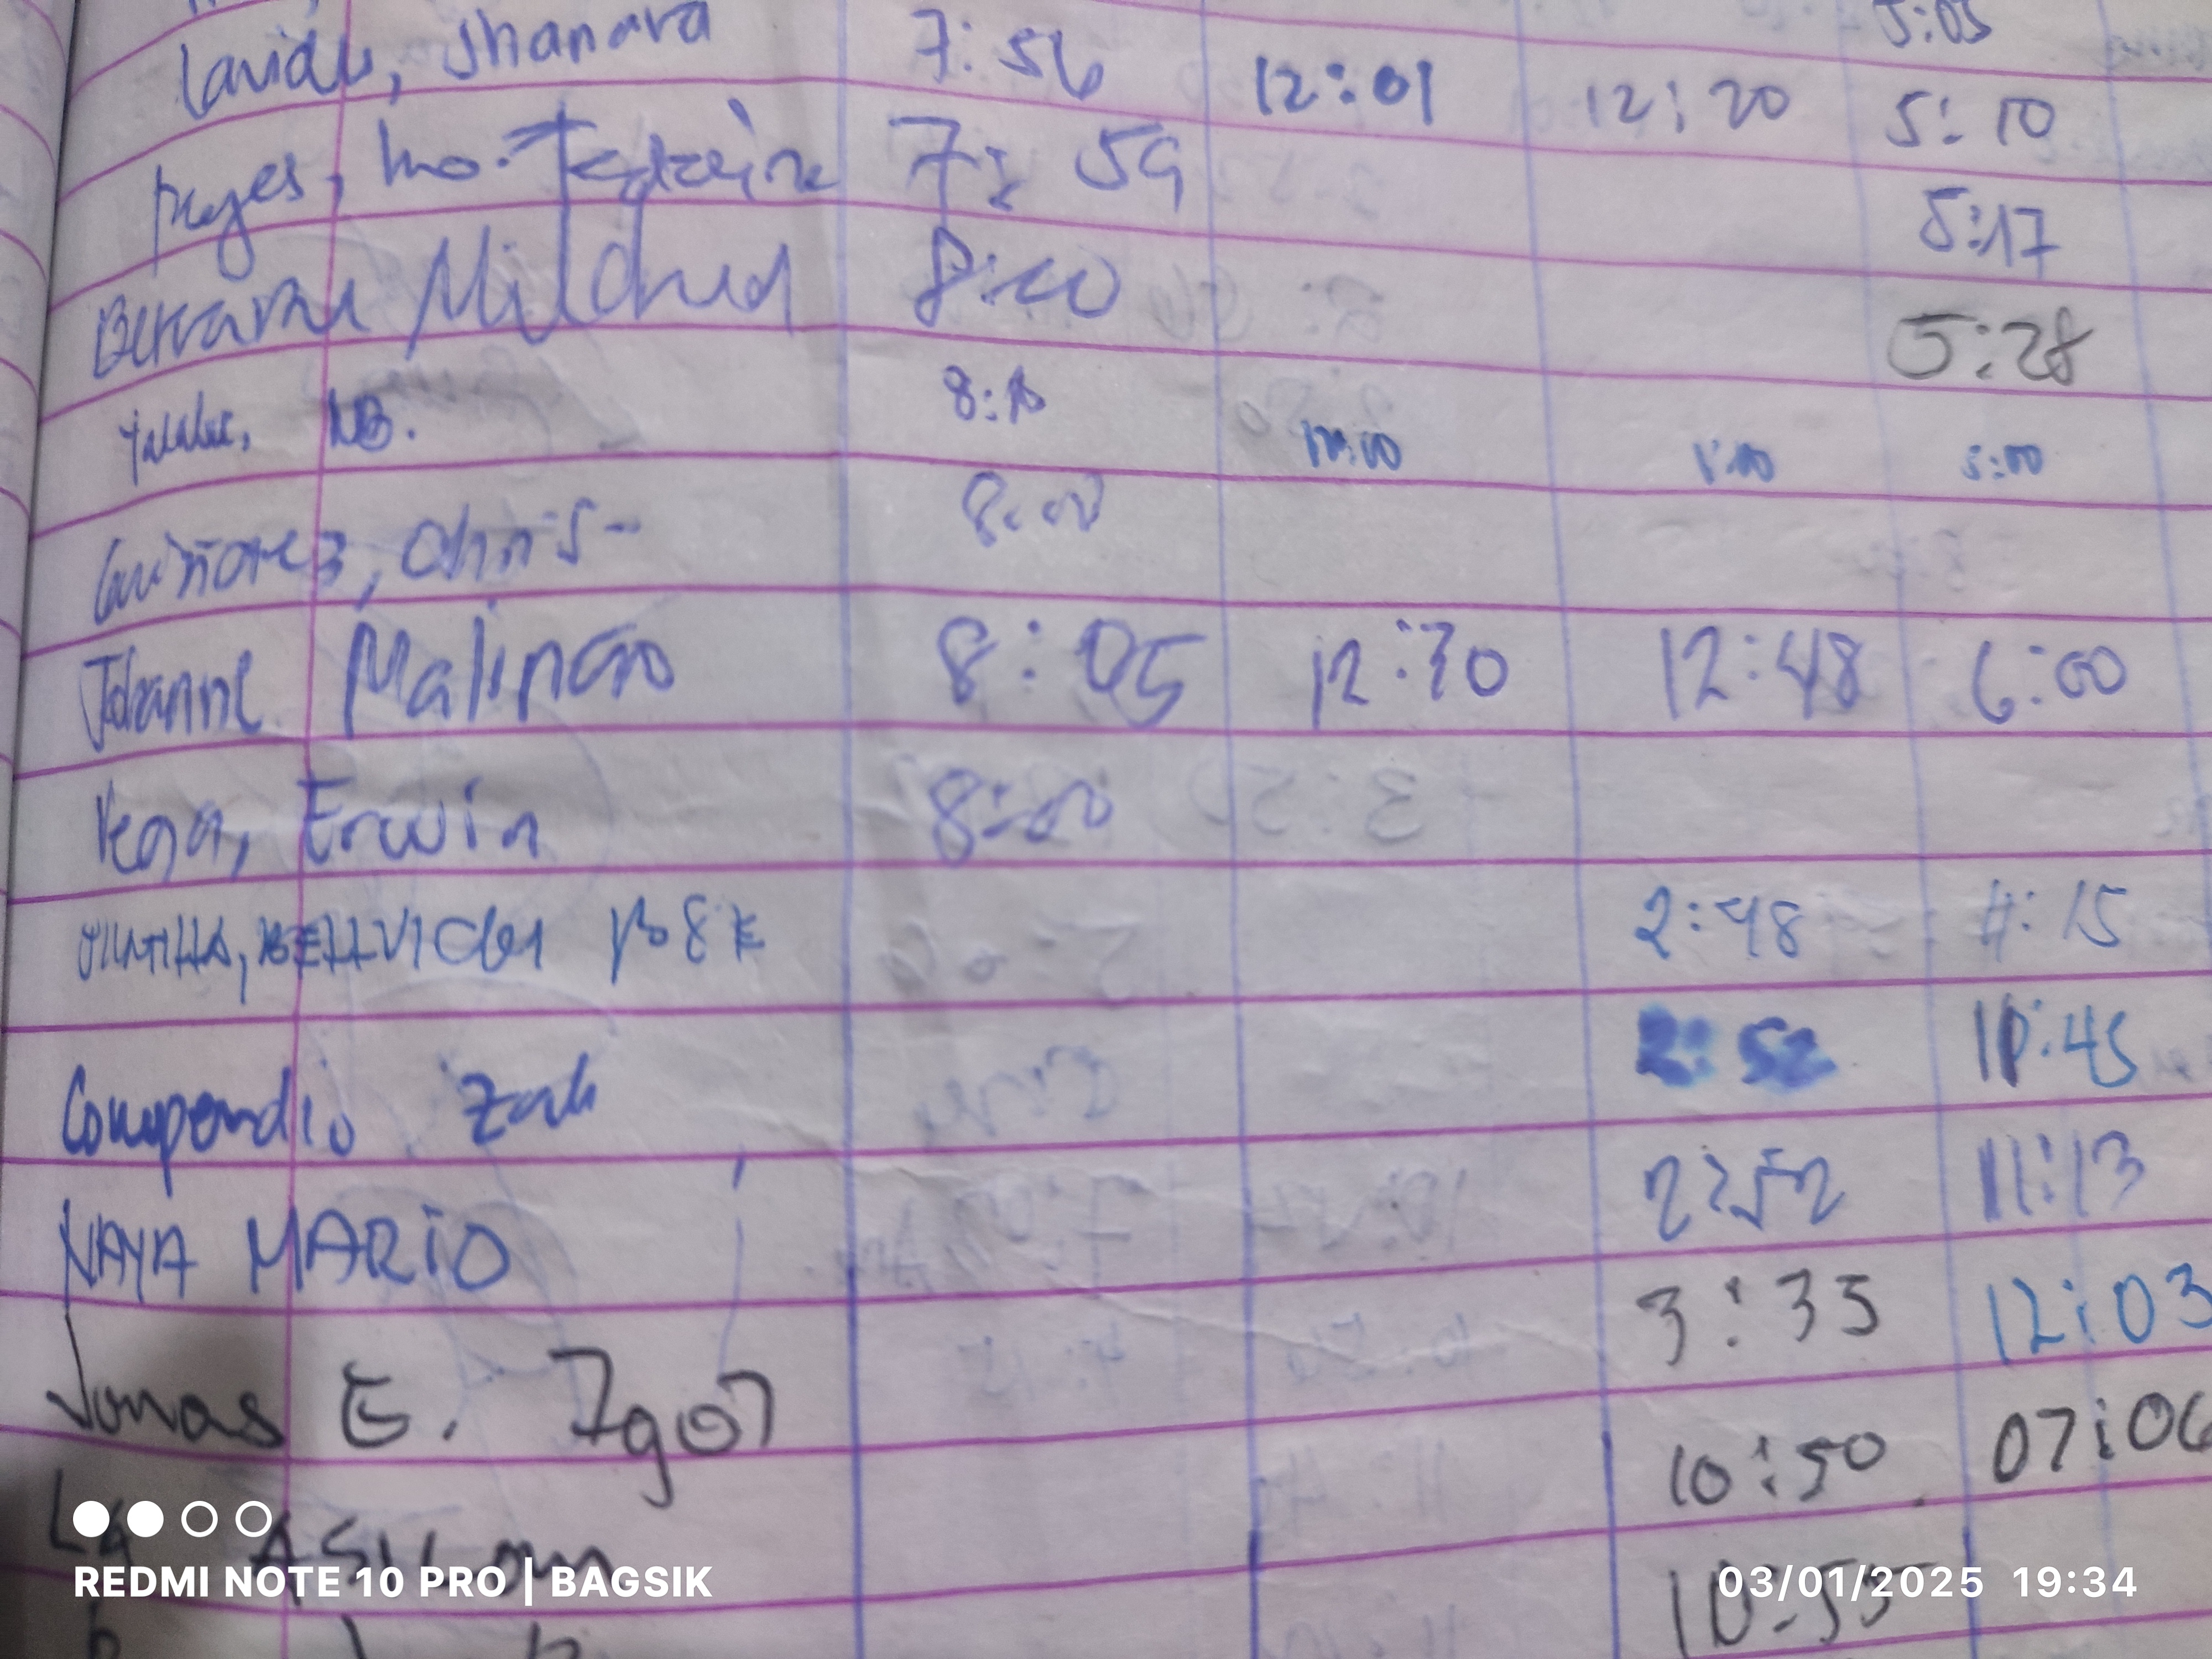 5:05
Lavidu, Jhanara 7:56 12:01 12:20 5:10
Reyes, Ma. 7:59 5:17
Mildred 8:00 5:28
NB. 8:15 12:00 1:00 5:00
Guiñarez, Chris 8:00
Johanne Malinao 8:05 12:30 12:48 6:00
Vega, Erwin 8:00
2:48 4:15
Compendio Zak 2:52 11:45
NAYA MARIO 2:52 11:13
Jonas E. Igot 3:35 12:03
10:50 07:06
10:55
REDMI NOTE 10 PRO | BAGSIK
03/01/2025 19:34